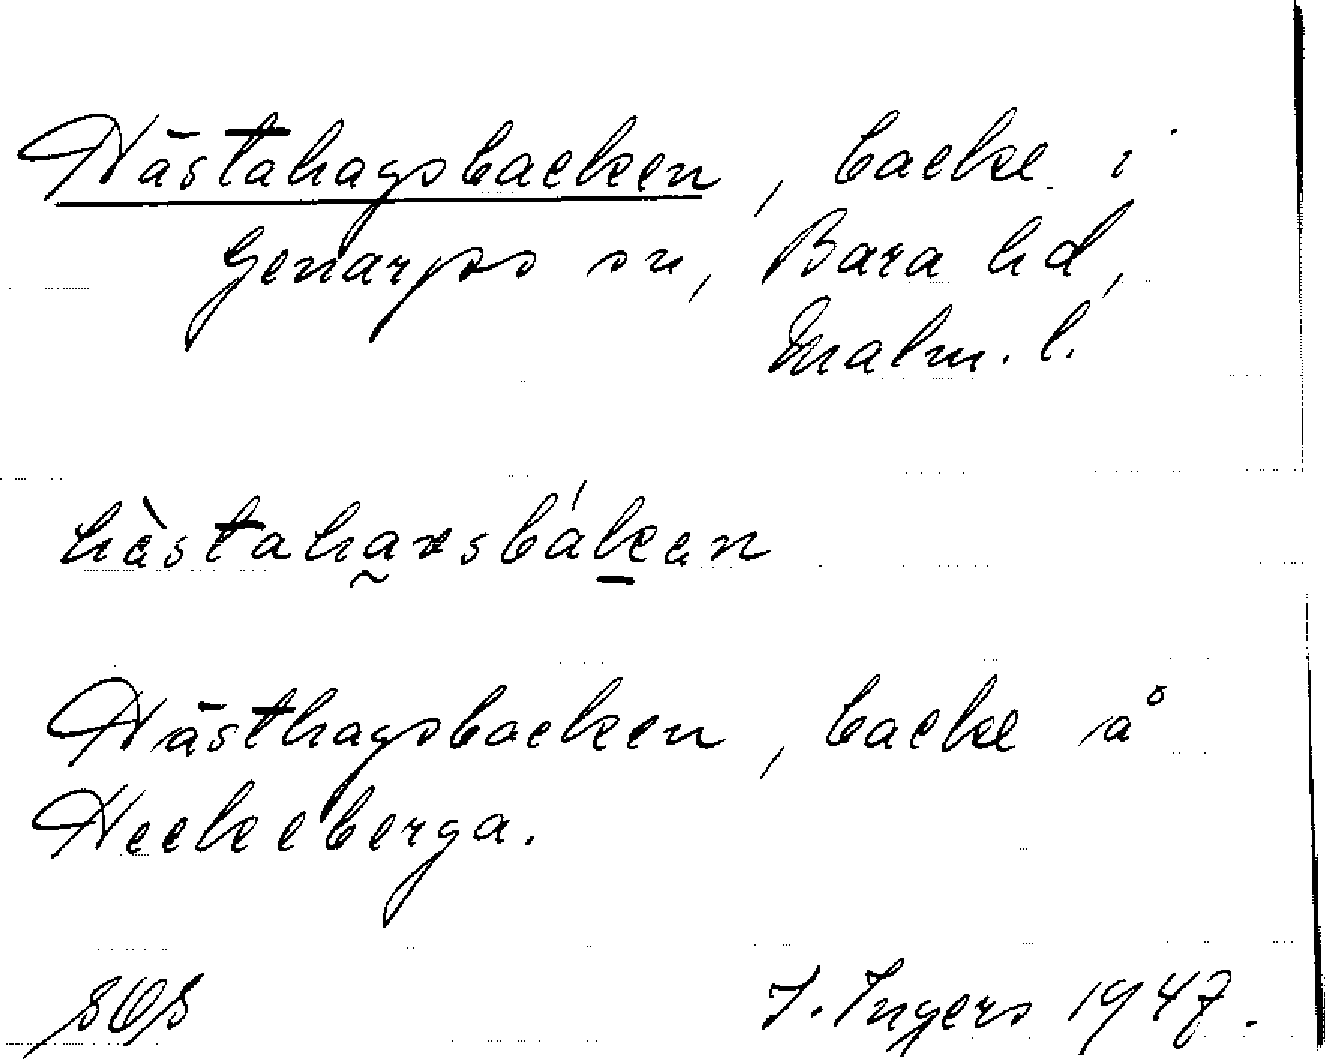 Hästahagsbacken, backe i
Genarps sn, Bara hd,
Malm. l.
hästahaxsbáken
Hästhagsbacken, backe å
Heckeberga.
I. Ingers 1947.